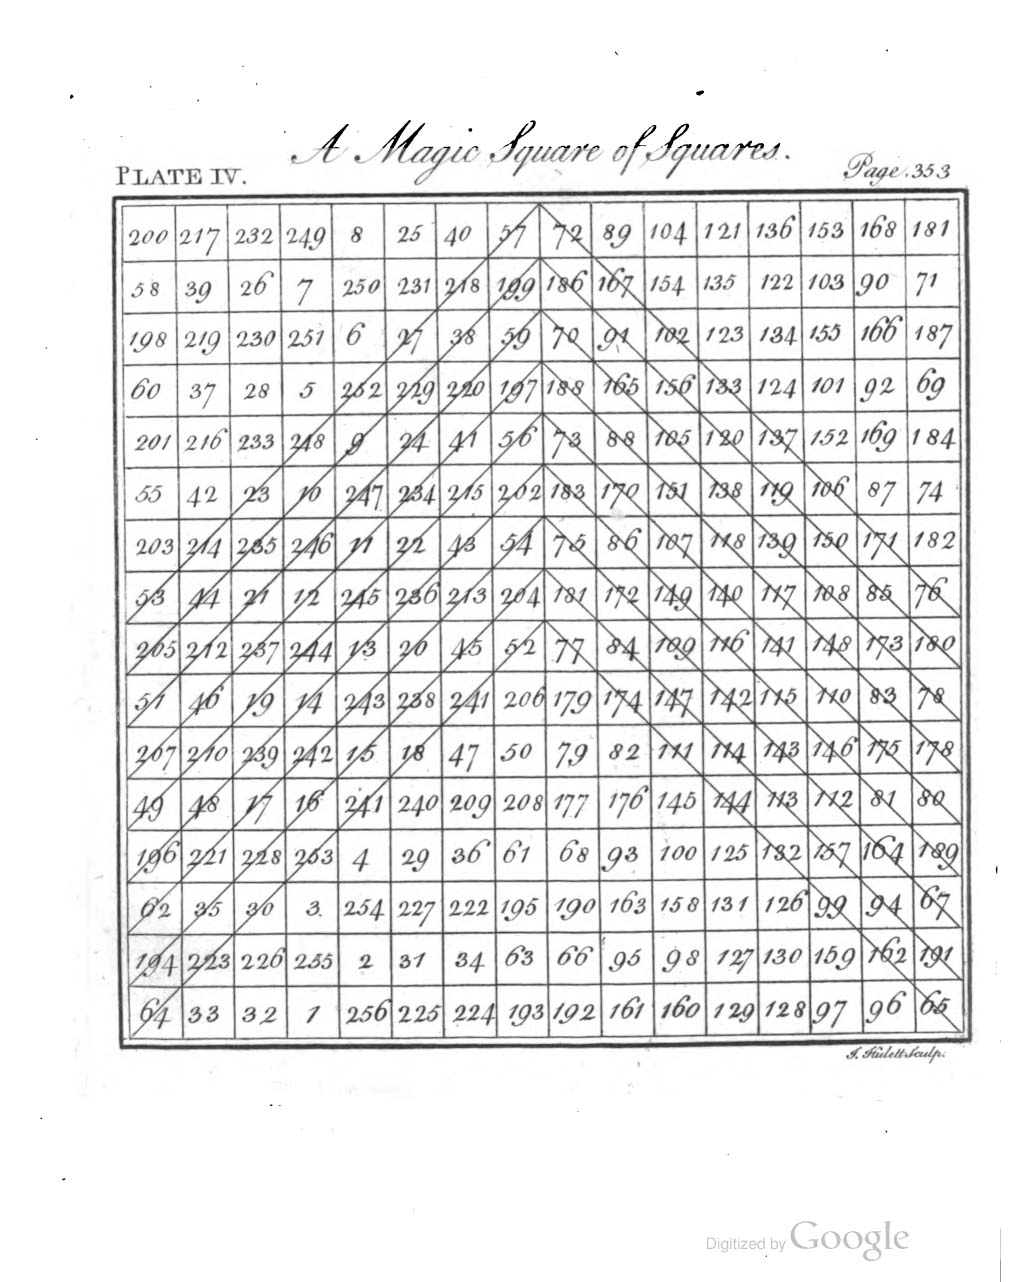 A Magic Square of Squares.
PLATE IV. Page.353
200 217 232 249 8 25 40 57 72 89 104 121 136 153 168 181
58 39 26 7 250 231 218 199 186 167 154 135 122 103 90 71
198 219 230 251 6 27 38 59 70 91 102 123 134 155 166 187
60 37 28 5 252 229 220 197 188 165 156 133 124 101 92 69
201 216 233 248 9 24 41 56 73 88 105 120 137 152 169 184
55 42 23 10 247 234 215 202 183 170 151 138 119 106 87 74
203 214 235 246 11 22 43 54 75 86 107 118 139 150 171 182
53 44 21 12 245 236 213 204 181 172 149 140 117 108 85 76
205 212 237 244 13 20 45 52 77 84 109 116 141 148 173 180
51 46 19 14 243 238 241 206 179 174 147 142 115 110 83 78
207 210 239 242 15 18 47 50 79 82 111 114 143 146 175 178
49 48 17 16 241 240 209 208 177 176 145 144 113 112 81 80
196 221 228 253 4 29 36 61 68 93 100 125 132 157 164 189
62 35 30 3. 254 227 222 195 190 163 158 131 126 99 94 67
194 223 226 255 2 31 34 63 66 95 98 127 130 159 162 191
64 33 32 1 256 225 224 193 192 161 160 129 128 97 96 65
J. Hulett Sculp.
Digitized by Google